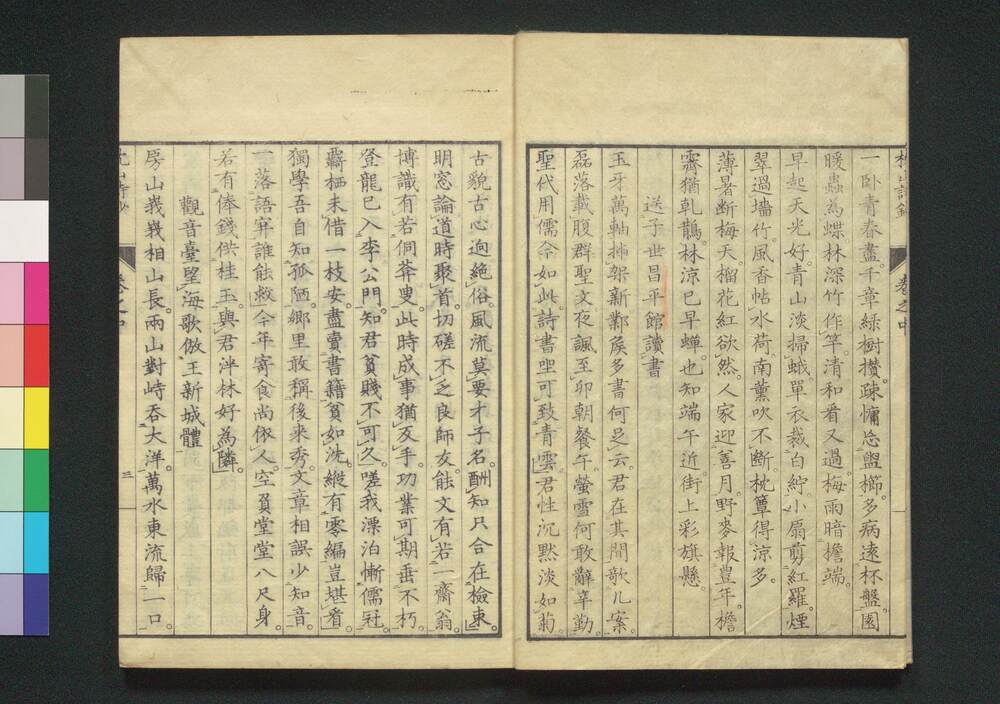 一臥青春盡千章緑樹攅疎慵忘盥櫛多病遠杯盤園
暖蟲為蝶林深竹作竿清和看又過梅雨暗檐端
早起天光好青山淡掃蛾單衣裁白紵小扇剪紅羅煙
翠過墻竹風香帖水荷南薫吹不断枕簟得涼多
薄暑断梅天榴花紅欲然人家迎善月野麥報豊年檐
霽猶乹鵲林涼已早蟬也知端午近街上彩旗懸
送子世昌平館讀書
玉牙萬軸挿架新鄴侯多書何足云君在其間歌儿案
磊落載腹群聖文夜諷至卯朝餐午螢雪何敢辭辛勤
聖代用儒今如此詩書坐可致青雲君性沉黙淡如菊
古貌古心迥絶俗風流莫要才子名酬知只合在檢束
明窓論道時聚首切磋不乏良師友能文有若一齋翁
博識有若侗菴叟此時成事猶反手功業可期垂不朽
登龍已入李公門知君貧賤不可久嗟我漂泊慚儒冠
鷦栖未借一枝安盡賣書籍貧如洗縦有零編豈堪看
獨學吾自知孤陋郷里敢稱後来秀文章相誤少知音
一落語穽誰能救今年寄食尚依人空負堂堂八尺身
若有俸錢供桂玉與君泮林好為隣
觀音臺望海歌倣王新城體
房山峩峩相山長兩山對峙呑大洋萬水東流歸一口
卷之中
三